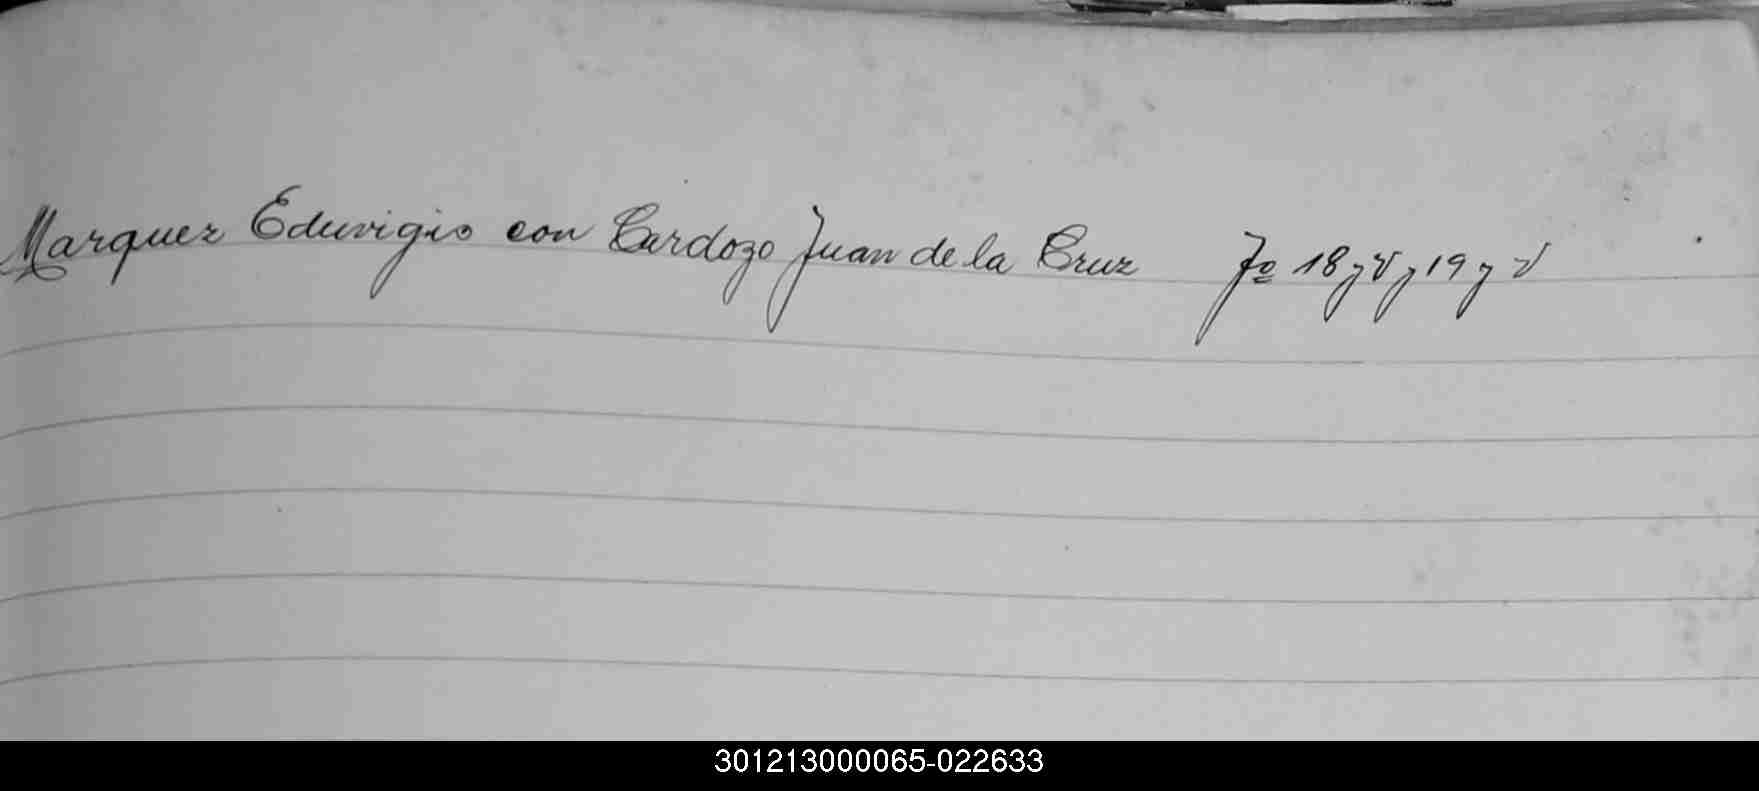 Marquez Eduvigio con Cardozo Juan de la Cruz Fº 18 y v y 19 y v
301213000065-022633